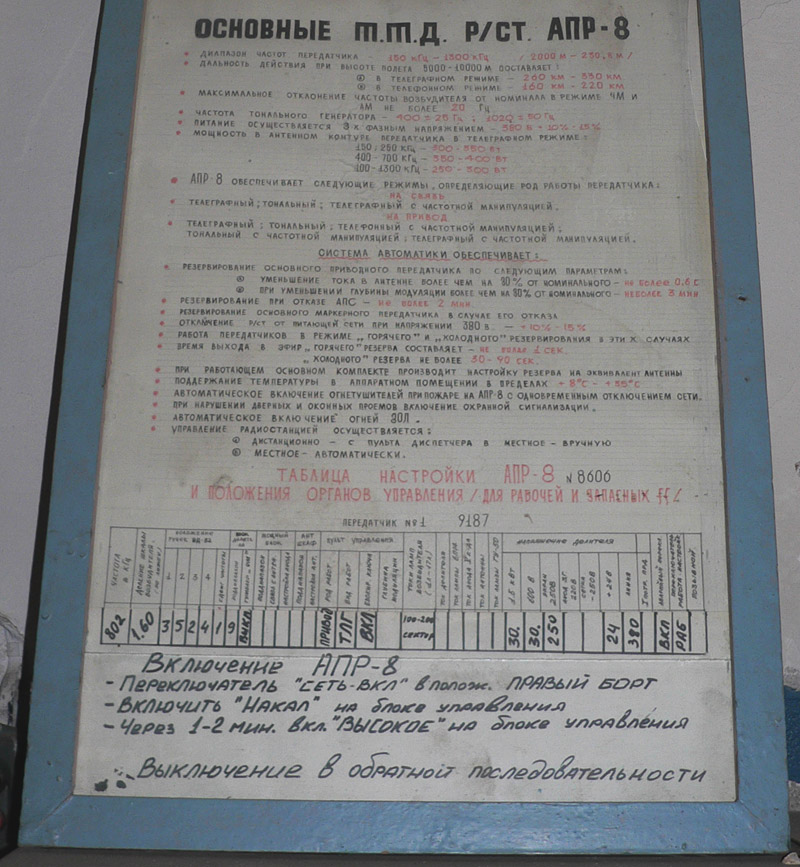 ОСНОВНЫЕ Т.Т.Д. Р/СТ. АПР-8
• ДИАПАЗОН ЧАСТОТ ПЕРЕДАТЧИКА - 150 кГц - 1300 кГц / 2000 м - 230,8 м /
• ДАЛЬНОСТЬ ДЕЙСТВИЯ ПРИ ВЫСОТЕ ПОЛЕТА 5000-10000 м СОСТАВЛЯЕТ:
В ТЕЛЕГРАФНОМ РЕЖИМЕ - 260 КМ - 330 КМ
В ТЕЛЕФОННОМ РЕЖИМЕ - 160 КМ - 220 КМ
• МАКСИМАЛЬНОЕ ОТКЛОНЕНИЕ ЧАСТОТЫ ВОЗБУДИТЕЛЯ ОТ НОМИНАЛА В РЕЖИМЕ ЧМ И
АМ НЕ БОЛЕЕ 20 Гц
• ЧАСТОТА ТОНАЛЬНОГО ГЕНЕРАТОРА - 400 ± 25 Гц ; 1020 ± 50 Гц
• ПИТАНИЕ ОСУЩЕСТВЛЯЕТСЯ 3х ФАЗНЫМ НАПРЯЖЕНИЕМ - 380 В + 10% - 15%
• МОЩНОСТЬ В АНТЕННОМ КОНТУРЕ ПЕРЕДАТЧИКА В ТЕЛЕГРАФНОМ РЕЖИМЕ:
150; 250 кГц - 500-550 Вт
400 - 700 кГц - 350 - 400 Вт
- 1300 кГц - 250 - 300 Вт
• АПР-8 ОБЕСПЕЧИВАЕТ СЛЕДУЮЩИЕ РЕЖИМЫ, ОПРЕДЕЛЯЮЩИЕ РОД РАБОТЫ ПЕРЕДАТЧИКА:
НА СВЯЗЬ
• ТЕЛЕГРАФНЫЙ; ТОНАЛЬНЫЙ; ТЕЛЕГРАФНЫЙ С ЧАСТОТНОЙ МАНИПУЛЯЦИЕЙ.
НА ПРИВОД
• ТЕЛЕГРАФНЫЙ; ТОНАЛЬНЫЙ; ТЕЛЕФОННЫЙ С ЧАСТОТНОЙ МАНИПУЛЯЦИЕЙ;
ТОНАЛЬНЫЙ С ЧАСТОТНОЙ МАНИПУЛЯЦИЕЙ; ТЕЛЕГРАФНЫЙ С ЧАСТОТНОЙ МАНИПУЛЯЦИЕЙ.
СИСТЕМА АВТОМАТИКИ ОБЕСПЕЧИВАЕТ:
• РЕЗЕРВИРОВАНИЕ ОСНОВНОГО ПРИВОДНОГО ПЕРЕДАТЧИКА ПО СЛЕДУЮЩИМ ПАРАМЕТРАМ:
УМЕНЬШЕНИЕ ТОКА В АНТЕННЕ БОЛЕЕ ЧЕМ НА 30% ОТ НОМИНАЛЬНОГО - НЕ БОЛЕЕ 0.6 С
ПРИ УМЕНЬШЕНИИ ГЛУБИНЫ МОДУЛЯЦИИ БОЛЕЕ ЧЕМ НА 30% ОТ НОМИНАЛЬНОГО - НЕ БОЛЕЕ 3 МИН
• РЕЗЕРВИРОВАНИЕ ПРИ ОТКАЗЕ АПС - НЕ БОЛЕЕ 2 МИН.
• РЕЗЕРВИРОВАНИЕ ОСНОВНОГО МАРКЕРНОГО ПЕРЕДАТЧИКА В СЛУЧАЕ ЕГО ОТКАЗА
• ОТКЛЮЧЕНИЕ Р/СТ ОТ ПИТАЮЩЕЙ СЕТИ ПРИ НАПРЯЖЕНИИ 380 В. - +10% - 15%
• РАБОТА ПЕРЕДАТЧИКОВ В РЕЖИМЕ „ГОРЯЧЕГО" И „ХОЛОДНОГО" РЕЗЕРВИРОВАНИЯ В ЭТИХ СЛУЧАЯХ
• ВРЕМЯ ВЫХОДА В ЭФИР „ГОРЯЧЕГО" РЕЗЕРВА СОСТАВЛЯЕТ - НЕ БОЛЕЕ 1 СЕК.
„ХОЛОДНОГО" РЕЗЕРВА НЕ БОЛЕЕ 30-90 СЕК.
• ПРИ РАБОТАЮЩЕМ ОСНОВНОМ КОМПЛЕКТЕ ПРОИЗВОДИТ НАСТРОЙКУ РЕЗЕРВА НА ЭКВИВАЛЕНТ АНТЕННЫ
• ПОДДЕРЖАНИЕ ТЕМПЕРАТУРЫ В АППАРАТНОМ ПОМЕЩЕНИИ В ПРЕДЕЛАХ + 8°С - + 35°С
• АВТОМАТИЧЕСКОЕ ВКЛЮЧЕНИЕ ОГНЕТУШИТЕЛЕЙ ПРИ ПОЖАРЕ НА АПР-8 С ОДНОВРЕМЕННЫМ ОТКЛЮЧЕНИЕМ СЕТИ.
• ПРИ НАРУШЕНИИ ДВЕРНЫХ И ОКОННЫХ ПРОЕМОВ ВКЛЮЧЕНИЕ ОХРАННОЙ СИГНАЛИЗАЦИИ.
• АВТОМАТИЧЕСКОЕ ВКЛЮЧЕНИЕ ОГНЕЙ ЗОЛ.
• УПРАВЛЕНИЕ РАДИОСТАНЦИЕЙ ОСУЩЕСТВЛЯЕТСЯ:
ДИСТАНЦИОННО - С ПУЛЬТА ДИСПЕТЧЕРА В МЕСТНОЕ - ВРУЧНУЮ
МЕСТНОЕ - АВТОМАТИЧЕСКИ.
ТАБЛИЦА НАСТРОЙКИ АПР-8 N 8606
И ПОЛОЖЕНИЯ ОРГАНОВ УПРАВЛЕНИЯ / ДЛЯ РАБОЧЕЙ И ЗАПАСНЫХ
ПЕРЕДАТЧИК №1 9187
ПУЛЬТ УПРАВЛЕНИЯ
ЧАСТОТА В КГц
1 2 3 4
РОД РАБОТ
ВИД РАБОТ
ПОЗЫВНОЙ
802 1.60 3 5 2 4 1 9 ВЫКЛ ПРИВОД ТЛГ ВКЛ 100-200 СЕКТОР 30. 30. 250 24 380 ВКЛ РАБ
Включение АПР-8
- Переключатель "СЕТЬ-ВКЛ" в полож. ПРАВЫЙ БОРТ
- Включить "Накал" на блоке управления
- Через 1-2 мин. вкл. "ВЫСОКОЕ" на блоке управления
Выключение в обратной последовательности